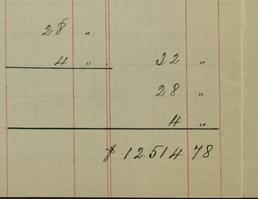 28 "
4 " 32 "
28 "
4 "
$ 12.514 78